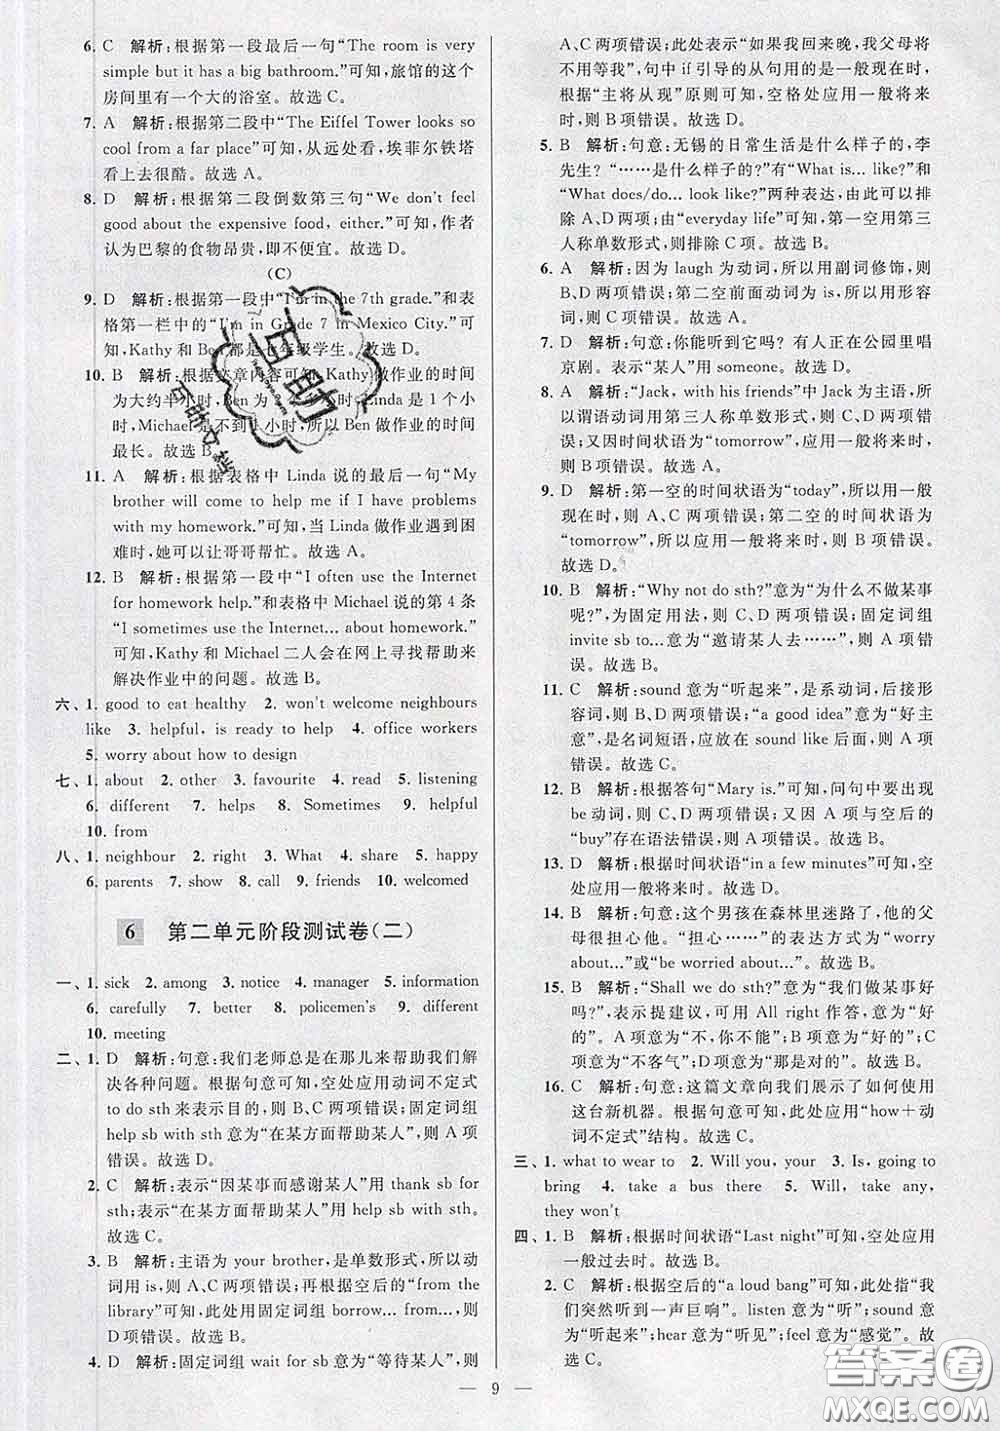 6. C 解析:根据第一段最后一句“The room is very
simple but it has a big bathroom.”可知,旅馆的这个
房间里有一个大的浴室。故选 C。
7. A 解析:根据第二段中“The Eiffel Tower looks so
cool from a far place”可知,从远处看,埃菲尔铁塔
看上去很酷。故选 A。
8. D 解析:根据第二段倒数第三句“We don't feel
good about the expensive food, either.”可知,作者
认为巴黎的食物昂贵,即不便宜。故选 D。
(C)
9. D 解析:根据第一段中“I'm in the 7th grade.”和表
格第一栏中的“I'm in Grade 7 in Mexico City.”可
知,Kathy 和 Ben 都是七年级学生。故选 D。
10. B 解析:根据文章内容可知,Kathy 做作业的时间
为大约半小时,Ben 为 2 个小时,Linda 是 1 个小
时,Michael 是不到 1 小时,所以 Ben 做作业的时间
最长。故选 B。
11. A 解析:根据表格中 Linda 说的最后一句“My
brother will come to help me if I have problems
with my homework.”可知,当 Linda 做作业遇到困
难时,她可以让哥哥帮忙。故选 A。
12. B 解析:根据第一段中“I often use the Internet
for homework help.”和表格中 Michael 说的第 4 条
“I sometimes use the Internet... about homework.”
可知,Kathy 和 Michael 二人会在网上寻找帮助来
解决作业中的问题。故选 B。
六、1. good to eat healthy 2. won't welcome neighbours
like 3. helpful, is ready to help 4. office workers
5. worry about how to design
七、1. about 2. other 3. favourite 4. read 5. listening
6. different 7. helps 8. Sometimes 9. helpful
10. from
八、1. neighbour 2. right 3. What 4. share 5. happy
6. parents 7. show 8. call 9. friends 10. welcomed
6 第二单元阶段测试卷(二)
一、1. sick 2. among 3. notice 4. manager 5. information
6. carefully 7. better 8. policemen's 9. different
10. meeting
二、1. D 解析:句意:我们老师总是在那儿来帮助我们解
决各种问题。根据句意可知,空处应用动词不定式
to do sth 来表示目的,则 B、C 两项错误;固定词组
help sb with sth 意为“在某方面帮助某人”,则 A 项
错误。故选 D。
2. C 解析:表示“因某事而感谢某人”用 thank sb for
sth;表示“在某方面帮助某人”用 help sb with sth。
故选 C。
3. B 解析:主语为 your brother,是单数形式,所以动
词用 is,则 A、C 两项错误;再根据空后的“from the
library”可知,此处用固定词组 borrow... from...,则
D 项错误。故选 B。
4. D 解析:固定词组 wait for sb 意为“等待某人”,则
A、C 两项错误;此处表示“如果我回来晚,我父母将
不用等我”,句中 if 引导的从句用的是一般现在时,
根据“主将从现”原则可知,空格处应用一般将来
时,则 B 项错误。故选 D。
5. B 解析:句意:无锡的日常生活是什么样子的,李
先生?“……是什么样子的?”有“What is... like?”和
“What does/do... look like?”两种表达,由此可以排
除 A、D 两项;由“everyday life”可知,第一空用第三
人称单数形式,则排除 C 项。故选 B。
6. A 解析:因为 laugh 为动词,所以用副词修饰,则
B、D 两项错误;第二空前面动词为 is,所以用形容
词,则 C 项错误。故选 A。
7. D 解析:句意:你能听到它吗?有人正在公园里唱
京剧。表示“某人”用 someone。故选 D。
8. A 解析:“Jack, with his friends”中 Jack 为主语,所
以谓语动词用第三人称单数形式,则 C、D 两项错
误;又因时间状语为“tomorrow”,应用一般将来时,
则 B 项错误。故选 A。
9. D 解析:第一空的时间状语为“today”,所以用一
般现在时,则 A、C 两项错误;第二空的时间状语为
“tomorrow”,所以应用一般将来时,则 B 项错误。
故选 D。
10. B 解析:“Why not do sth?”意为“为什么不做某事
呢?”,为固定用法,则 C、D 两项错误;固定词组
invite sb to...意为“邀请某人去……”,则 A 项错
误。故选 B。
11. C 解析:sound 意为“听起来”,是系动词,后接形
容词,则 B、D 两项错误;“a good idea”意为“好主
意”,是名词短语,应放在 sound like 后面,则 A 项
错误。故选 C。
12. B 解析:根据答句“Mary is.”可知,问句中要出现
be 动词,则 C、D 两项错误;又因 A 项与空后的
“buy”存在语法错误,则 A 项错误。故选 B。
13. D 解析:根据时间状语“in a few minutes”可知,空
处应用一般将来时。故选 D。
14. B 解析:句意:这个男孩在森林里迷路了,他的父
母很担心他。“担心……”的表达方式为“worry
about...”或“be worried about...”。故选 B。
15. B 解析:“Shall we do sth?”意为“我们做某事好
吗?”,表示提建议,可用 All right 作答,意为“好
的”。A 项意为“不,你不能”;B 项意为“好的”;C
项意为“不客气”;D 项意为“那是对的”。故选 B。
16. C 解析:句意:这篇文章向我们展示了如何使用
这台新机器。根据句意可知,此处应用“how+动
词不定式”结构。故选 C。
三、1. what to wear to 2. Will you, your 3. Is, going to
bring 4. take a bus there 5. Will, take any,
they won't
四、1. B 解析:根据时间状语“Last night”可知,空处应用
一般过去时。故选 B。
2. C 解析:根据空后的“a loud bang”可知,此处指“我
们突然听到一声巨响”。listen 意为“听”;sound 意
为“听起来”;hear 意为“听见”;feel 意为“感觉”。故
选 C。
— 9 —
互助
互助文档
答案卷
MXQE.COM